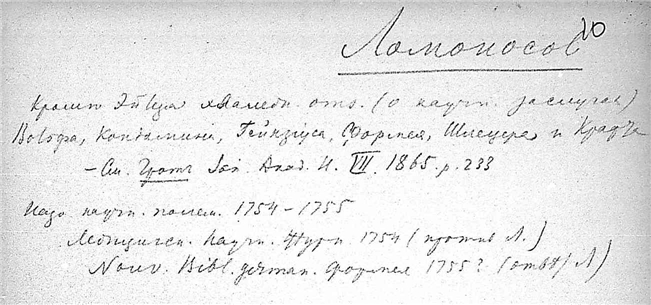 20
Ломоносов
Кроме Эйлера хвалебн. отз. (о научн. заслугах)
Вольфа, Кондамина, Гейнзиуса, Формея, Шлецера и Крафта
– См. Грот Зап. Акад. Н. VII. 1865. p. 233
научн. полем. 1754–1755
Научн. Журн. 1754 (против Л.)
Nouv. Bibl. german. Формея 1755? (отвѣт Л)